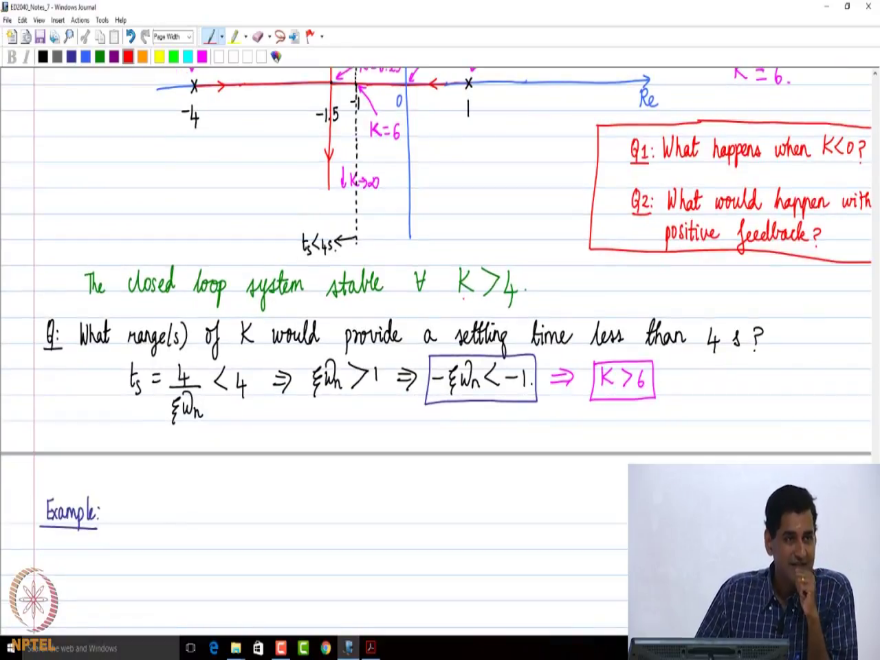 ED2040_Notes_7 - Windows Journal
File Edit View Insert Actions Tools Help
Page Width
B I
K = 6.
-4
-1.5
-1
0
1
Re
K=6
K→∞
tₛ<4s.
Q1: What happens when K<0?
Q2: What would happen with
positive feedback?
The closed loop system stable ∀ K>4.
Q: What range(s) of K would provide a settling time less than 4 s?
tₛ = 4/ξωₙ < 4 ⇒ ξωₙ > 1 ⇒ -ξωₙ < -1. ⇒ K > 6
Example:
NPTEL
the web and Windows